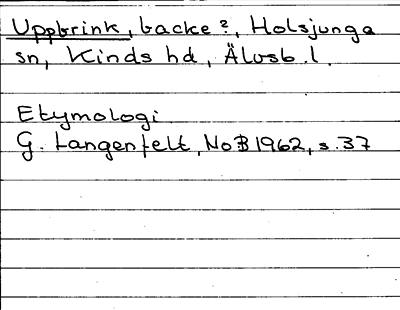 Uppbrink, backe?, Holsjunga
sn, Kinds hd, Älvsb. l.
Etymologi
G. Langenfelt, NoB 1962, s. 37